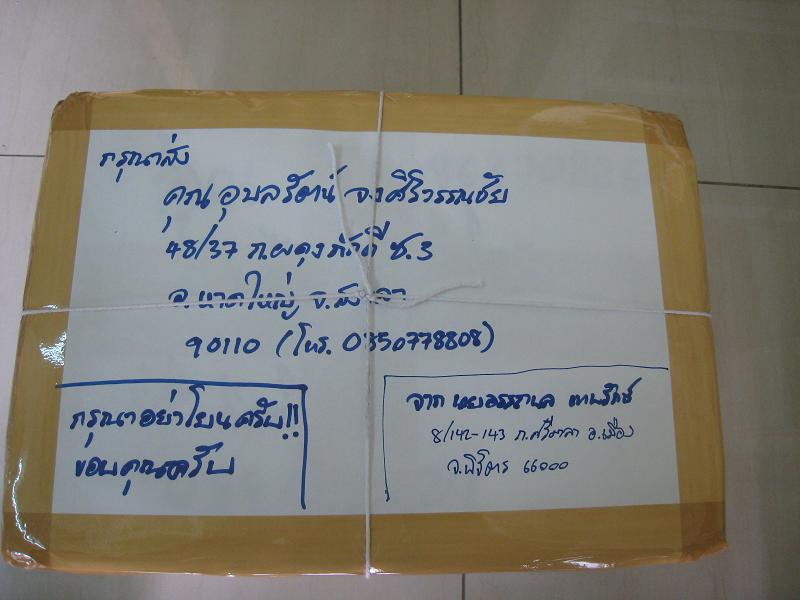 กรุณาส่ง
คุณ อุบลรัตน์ จงศิริวรรณชัย
48/37 ถ.ผดุงภักดี ซ.3
อ.หาดใหญ่ จ.สงขลา
90110 (โทร. 0850778808)
กรุณาอย่าโยนครับ!!
ขอบคุณครับ
จาก
8/142-143 ถ.ศรีมาลา อ.เมือง
จ.พิจิตร 66000